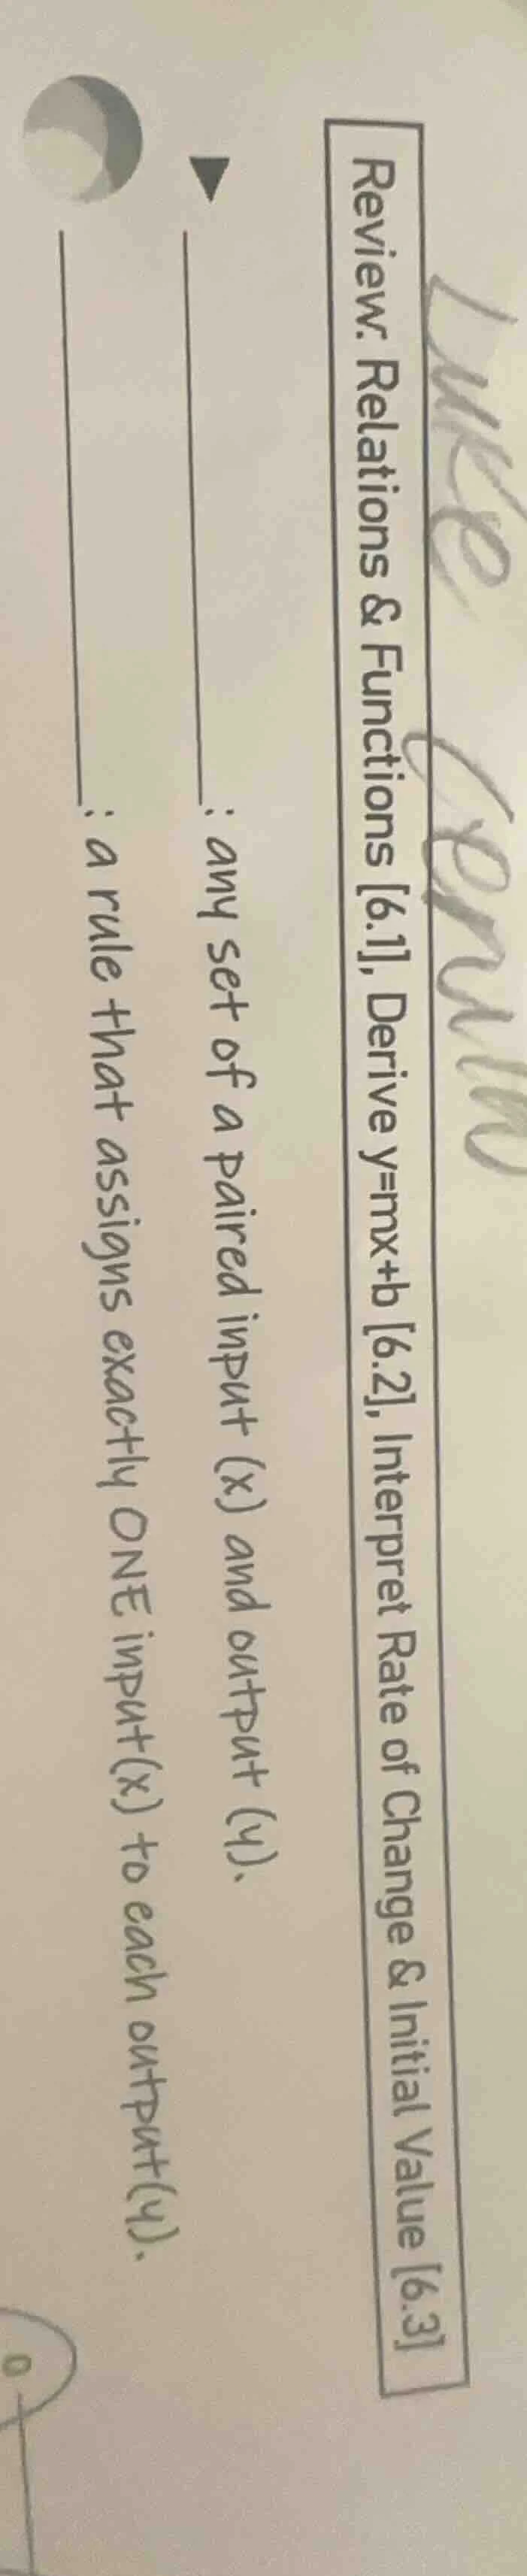 Luke
Review: Relations & Functions [6.1], Derive y=mx+b [6.2], Interpret Rate of Change & Initial Value [6.3]
: any set of a paired input (x) and output (y).
: a rule that assigns exactly ONE input(x) to each output(y).
0